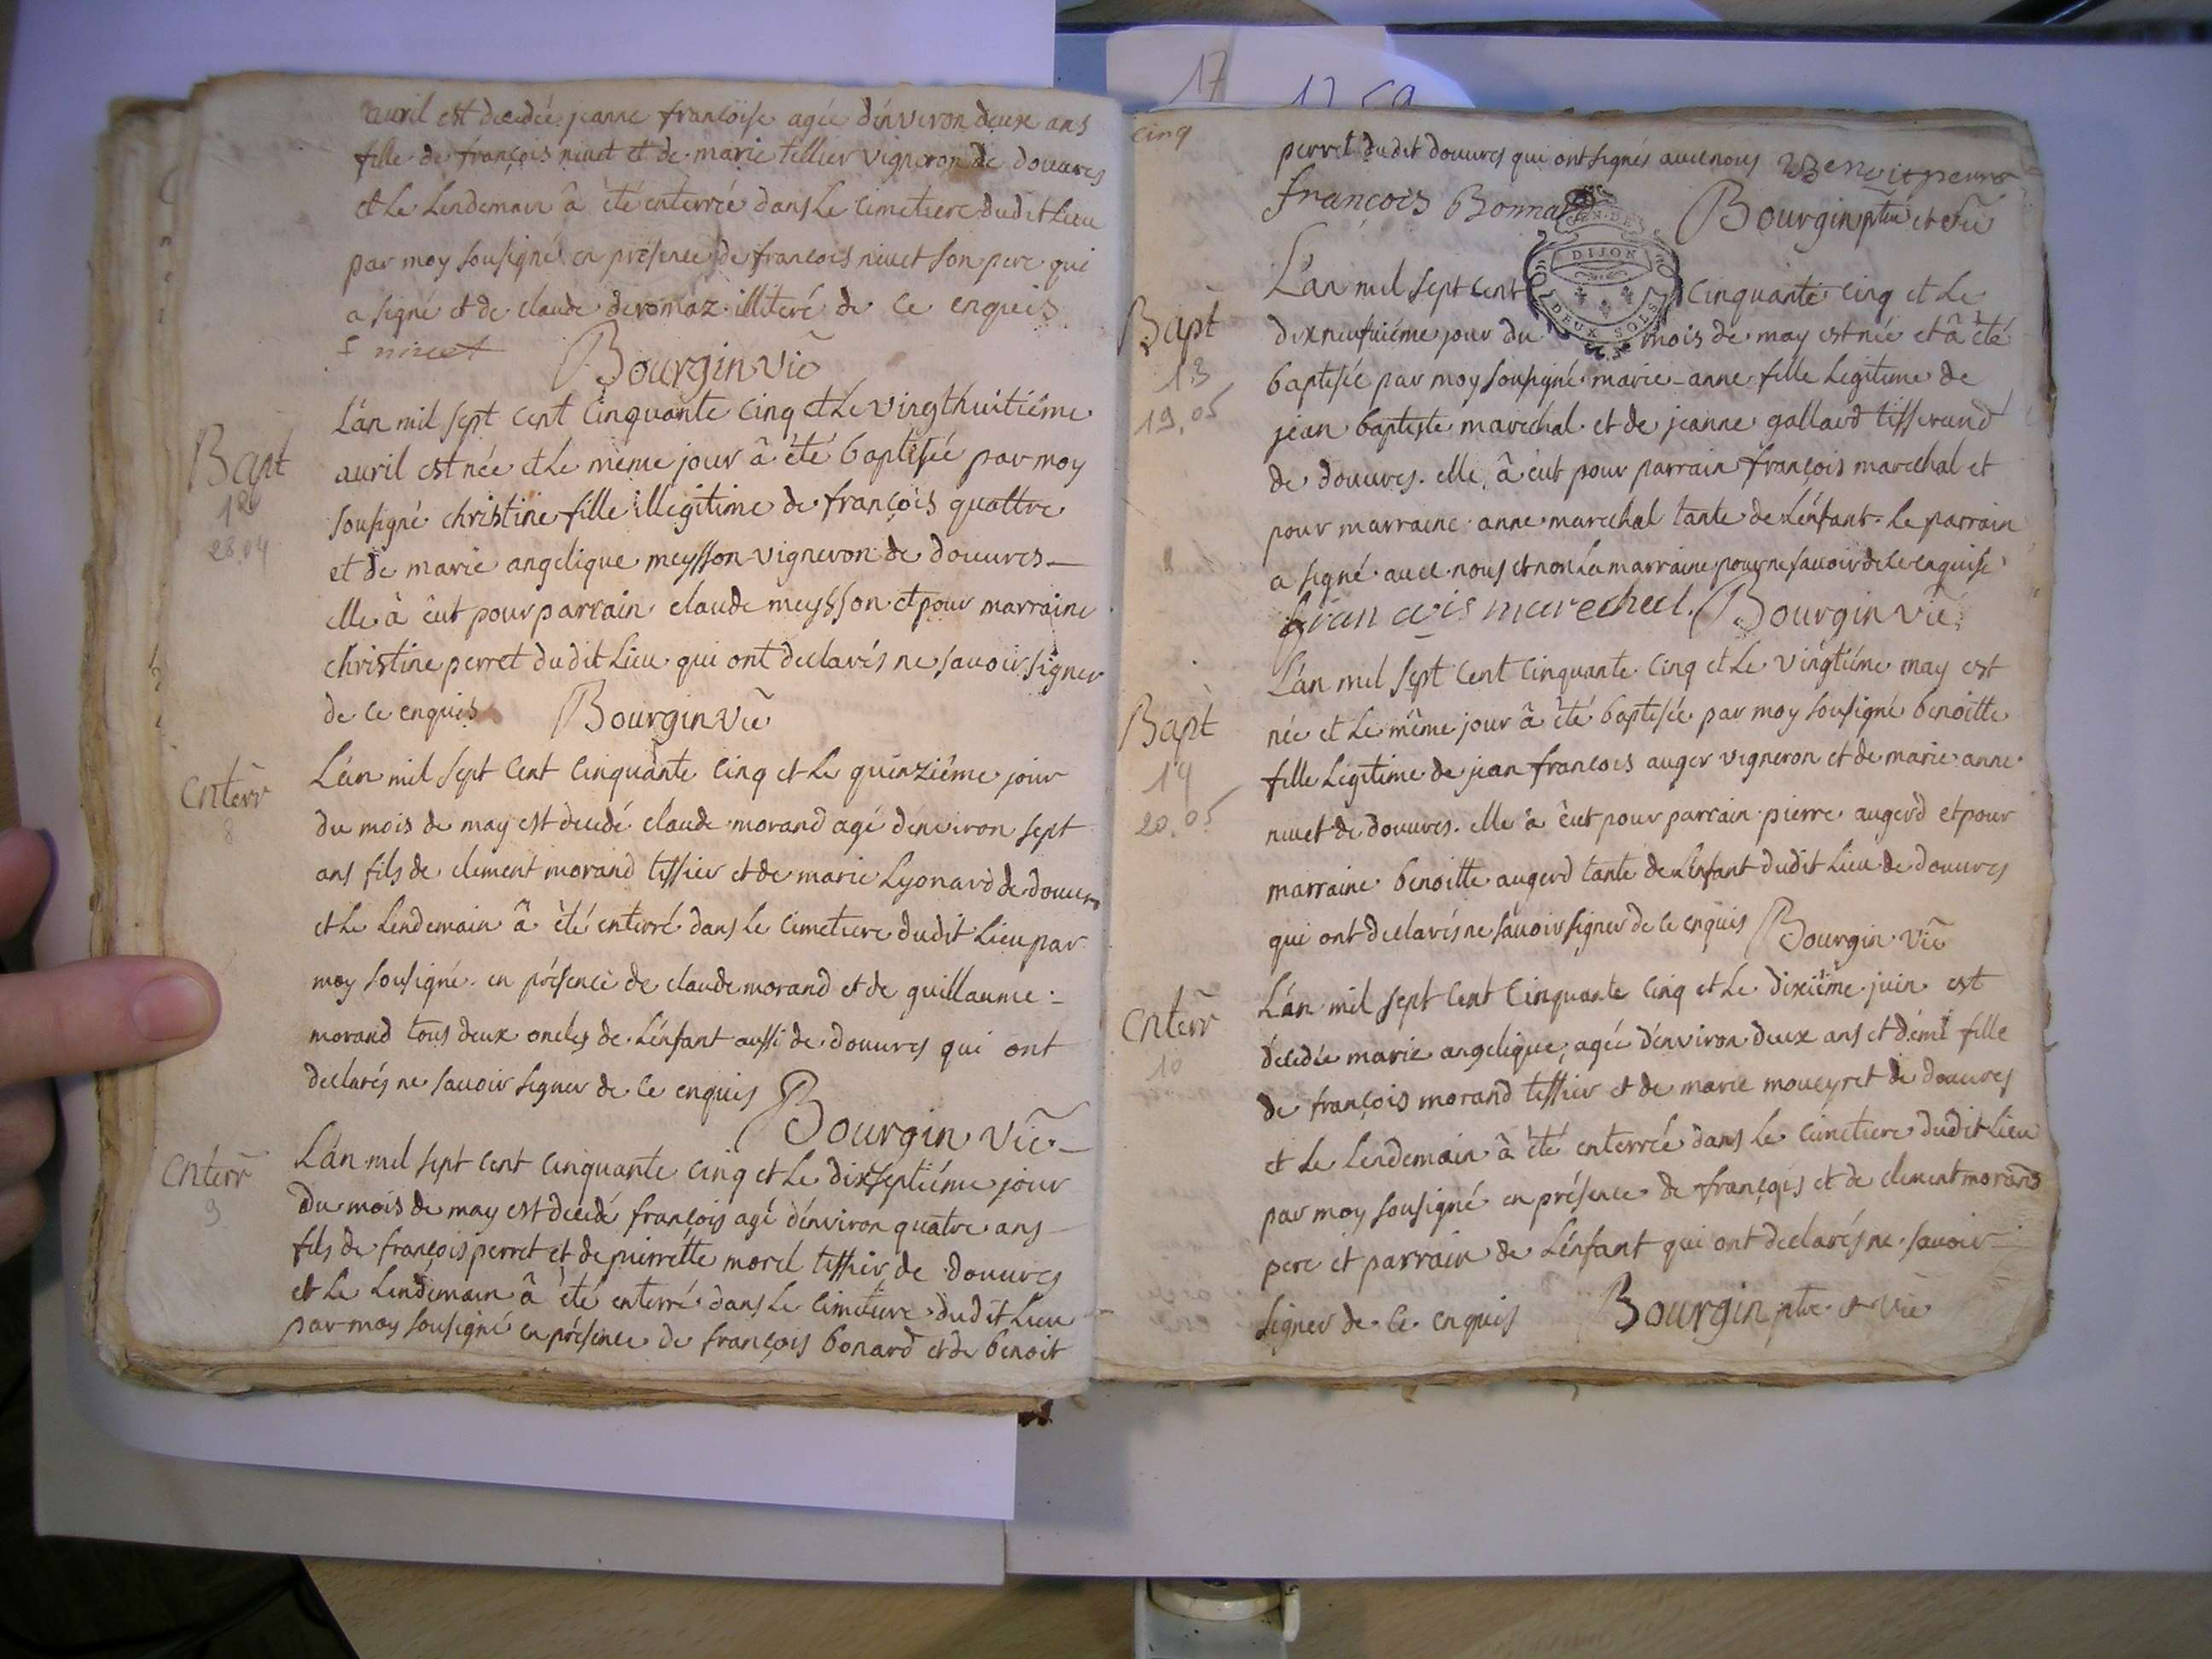 auril est decedée jeanne francoise agée d'énviron deux ans
fille de françois niuet et de marie tellier vigneron de douures
et le lendemain â été enterrée dans le cimetiere dudit lieu
par moy sousigné en présence de francois niuet son pere qui
a signé et de claude deromaz illiteré de ce enquis
f niuet Bourgin vic̃
L'an mil sept cent cinquante cinq et le vingthuitiéme
Bapt
auril est née et le même jour â été baptisée par moy
12
sousigné christine fille illegitime de françois quattre
28.04
et de marie angelique meysson vigneron de douures
elle â êut pour parrain claude meysson et pour marraine
christine perret dudit lieu qui ont declarés ne sauoir signer
de ce enquis Bourgin vic̃
L'an mil sept cent cinquante cinq et le quinziéme jour
enterr̃
8
du mois de may est decedé claude morand agé d'énviron sept
ans fils de clement morand tissier et de marie Lyonard de douures
et le lendemain â été enterré dans le cimetiere dudit lieu par
moy sousigné en présence de claude morand et de guillaume
morand tous deux oncles de l'énfant aussi de douures qui ont
declarés ne sauoir signer de ce enquis
Bourgin vic̃
L'an mil sept cent cinquante cinq et le dixseptiéme jour
enterr̃
9
du mois de may est decedé françois agé d'énviron quatre ans
fils de françois perret et de pierrette morel tissier de douures
et le lendemain â été enterré dans le cimetiere dudit lieu
par moy sousigné en présence de françois bonard et de benoit
17
cinq
perret dudit douures qui ont signés auec nous Benoit perret
francois Bonnard Bourgin ptre et vic̃
DIJON
DEUX SOLS
L'an mil sept cent cinquante cinq et le
Bapt
13
19.05
dixneufuiéme jour du mois de may est née et â été
baptisée par moy sousigné marie-anne fille legitime de
jean baptiste maréchal et de jeanne gallard tisserand
de douures. elle â êut pour parrain françois marechal et
pour marraine anne marechal tante de l'énfant. le parrain
a signé auec nous et non la marraine pour ne sauoir de ce enquise
francois marechal. Bourgin vic̃
L'an mil sept cent cinquante cinq et le vingtiéme may est
Bapt
14
20.05
née et le même jour â été baptisée par moy sousigné benoitte
fille legitime de jean francois auger vigneron et de marie anne
niuet de douures. elle â êut pour parrain pierre augerd et pour
marraine benoitte augerd tante de l'énfant dudit lieu de douures
qui ont declarés ne sauoir signer de ce enquis Bourgin vic̃
L'an mil sept cent cinquante cinq et le dixiéme juin est
enterr̃
10
decedée marie angelique, agée d'énviron deux ans et démi fille
de françois morand tissier et de marie moueyret de douures
et le lendemain â été enterrée dans le cimetiere dudit lieu
par moy sousigné en présence de françois et de clement morand
pere et parrain de l'énfant qui ont declarés ne sauoir
signer de ce enquis Bourgin ptre et vic̃